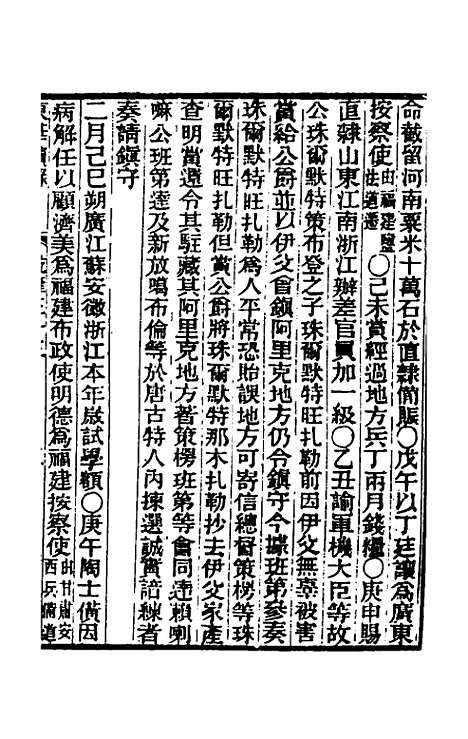 命截留河南粟米十萬石於直隸備賑〇戊午以丁廷讓爲廣東
按察使由福建鹽法道遷〇己未賞經過地方兵丁兩月錢糧〇庚申賜
直隸山東江南浙江辦差官員加一級〇乙丑諭軍機大臣等故
公珠爾默特策布登之子珠爾默特旺扎勒前因伊父無辜被害
賞給公爵並以伊父曾鎭阿里克地方仍令鎭守今據班第參奏
珠爾默特旺扎勒爲人平常恐貽誤地方可寄信總督策楞等珠
爾默特旺扎勒但賞公爵將珠爾默特那木扎勒抄去伊父家產
查明賞還令其駐藏其阿里克地方著策楞班第等會同達賴喇
嘛公班第達及新放噶布倫等於唐古特人內揀選誠實諳練者
奏請鎭守
二月己巳朔廣江蘇安徽浙江本年歲試學額〇庚午陶士僙因
病解任以顧濟美爲福建布政使明德爲福建按察使由甘肅安西兵備道